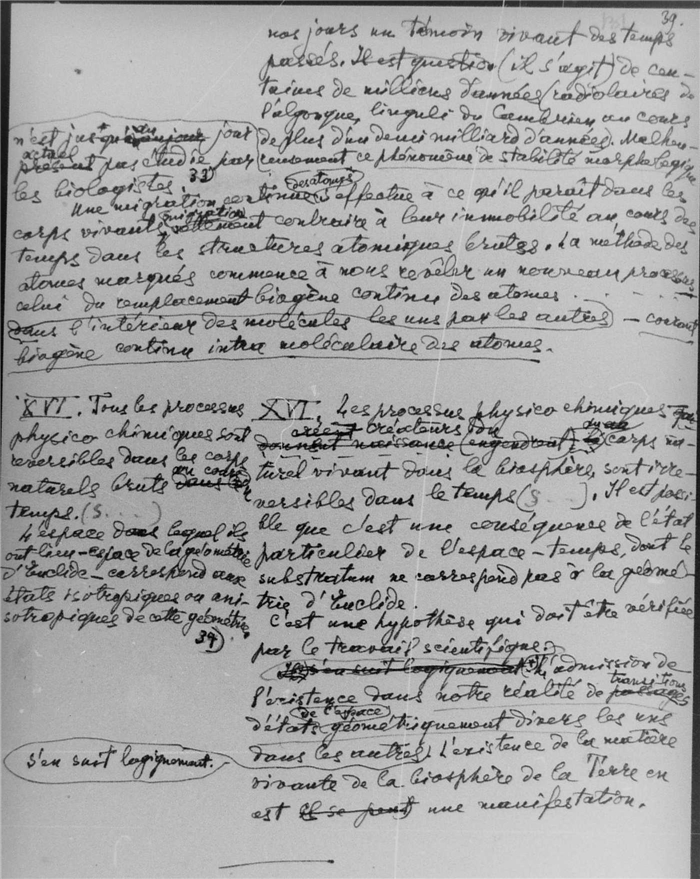 39.
nos jours un témoin vivant des temps
passés. Il est question (il s'agit) de cen-
taines de milliers d'années (radiolaires de
l'algonque, linguli du Cambrien au cours
de plus d'un demi milliard d'années). Malheu-
reusement ce phénomène de stabilité morphologique
n'est jusqu'au jour
actuel
présent pas étudié par
les biologistes. 33)
Une migration continue des atomes s'effectue à ce qu'il paraît dans les
corps vivants migration nettement contraire à leur immobilité au cours des
temps dans les structures atomiques brutes. La méthode des
atomes marqués commence à nous revêler un nouveau processus
celui du remplacement biogène continu des atomes . . . .
dans l'intérieur des molécules les uns par les autres) — courant
biogène continu intra moléculaire des atomes.
XVI. Tous les processus
physico chimiques sont
reversibles dans les corps
naturels bruts dans les au cours
temps. (S.....)
L'espace dans lequel ils
ont lieu - espace de la géometrie
d'Euclide - correspond aux
états isotropiques ou ani-
sotropiques de cette géométrie.
34)
XVI. Les processus physico chimiques
créent créateurs du
donnent naissance (engendrent) le corps na-
turel vivant dans la biosphère, sont irre-
versibles dans le temps (S....). Il est possi-
ble que c'est une conséquence de l'état
particulier de l'espace-temps, dont le
substratum ne correspond pas à la géomé-
trie d'Euclide.
C'est une hypothèse qui doit être vérifiée
par le travail scientifique.
Il s'en suit logiquement L'admission de
l'existence dans notre réalité de passages transitions
d'états de l'espace géométriquement divers les uns
dans les autres s'en suit logiquement. L'existence de la matière
vivante de la biosphère de la Terre en
est il se peut une manifestation.